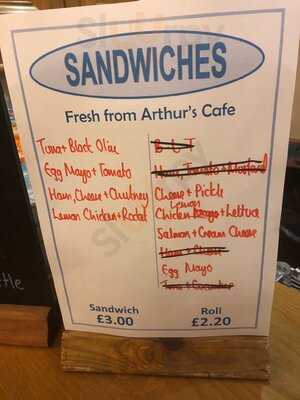 SANDWICHES
Fresh from Arthur's Cafe
Tuna + Black Olive
Egg Mayo + Tomato
Ham, Cheese + Chutney
Lemon Chicken + Rocket
B L T
Ham, Tomato + Mustard
Cheese + Pickle
Lemon
Chicken Mayo + Lettuce
Salmon + Cream Cheese
Ham + Cheese
Egg Mayo
Tuna + Cucumber
Sandwich
£3.00
Roll
£2.20